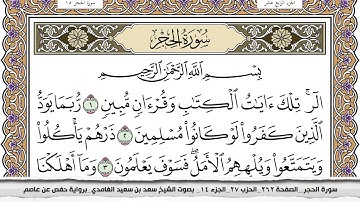 الجزء الرابع عشر
سورة الحجر ١٥
سُورَةُ الحِجْرِ
بِسْمِ اللَّهِ الرَّحْمَٰنِ الرَّحِيمِ
الٓر ۚ تِلْكَ ءَايَٰتُ ٱلْكِتَٰبِ وَقُرْءَانٍ مُّبِينٍ ١ رُّبَمَا يَوَدُّ
ٱلَّذِينَ كَفَرُوا۟ لَوْ كَانُوا۟ مُسْلِمِينَ ٢ ذَرْهُمْ يَأْكُلُوا۟
وَيَتَمَتَّعُوا۟ وَيُلْهِهِمُ ٱلْأَمَلُ ۖ فَسَوْفَ يَعْلَمُونَ ٣ وَمَآ أَهْلَكْنَا
سورة الحجر _الصفحة ٢٦٢_ الحزب ٢٧_الجزء ١٤_ بصوت الشيخ سعد بن سعيد الغامدي_برواية حفص عن عاصم